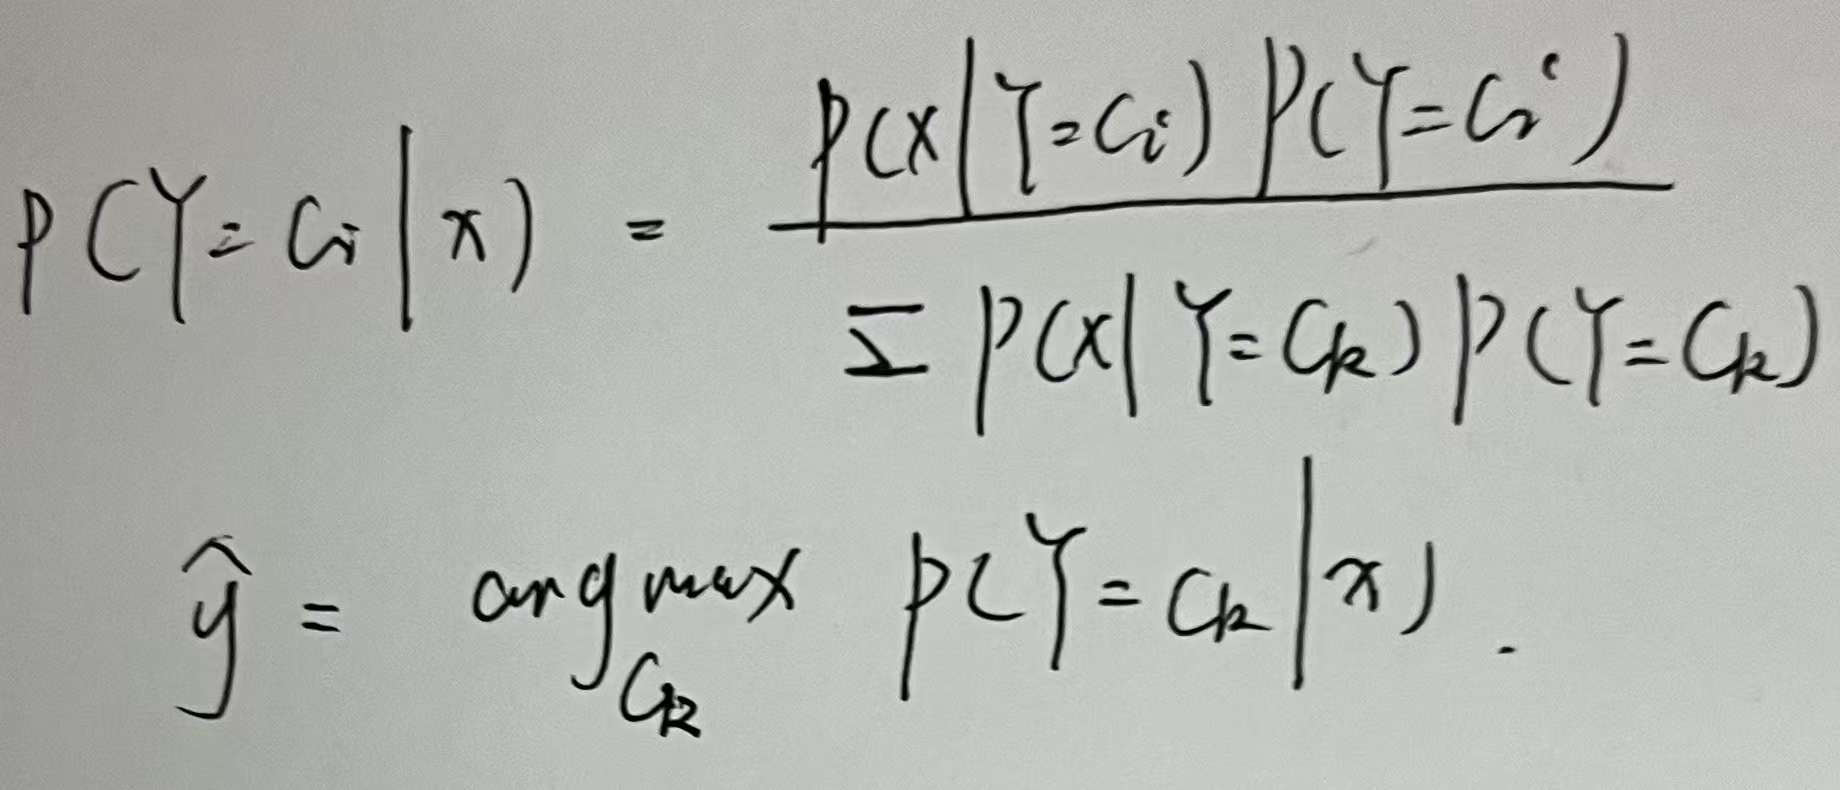 P(Y=Ci|x) = P(x|Y=Ci) P(Y=Ci) / Σ P(x|Y=Ck) P(Y=Ck)
ŷ = arg max_{Ck} P(Y=Ck|x).